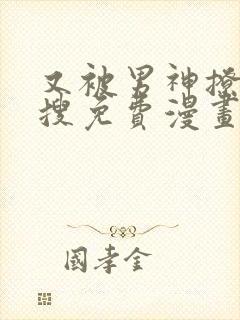 又被男神撩
搜免費漫畫
國孝金